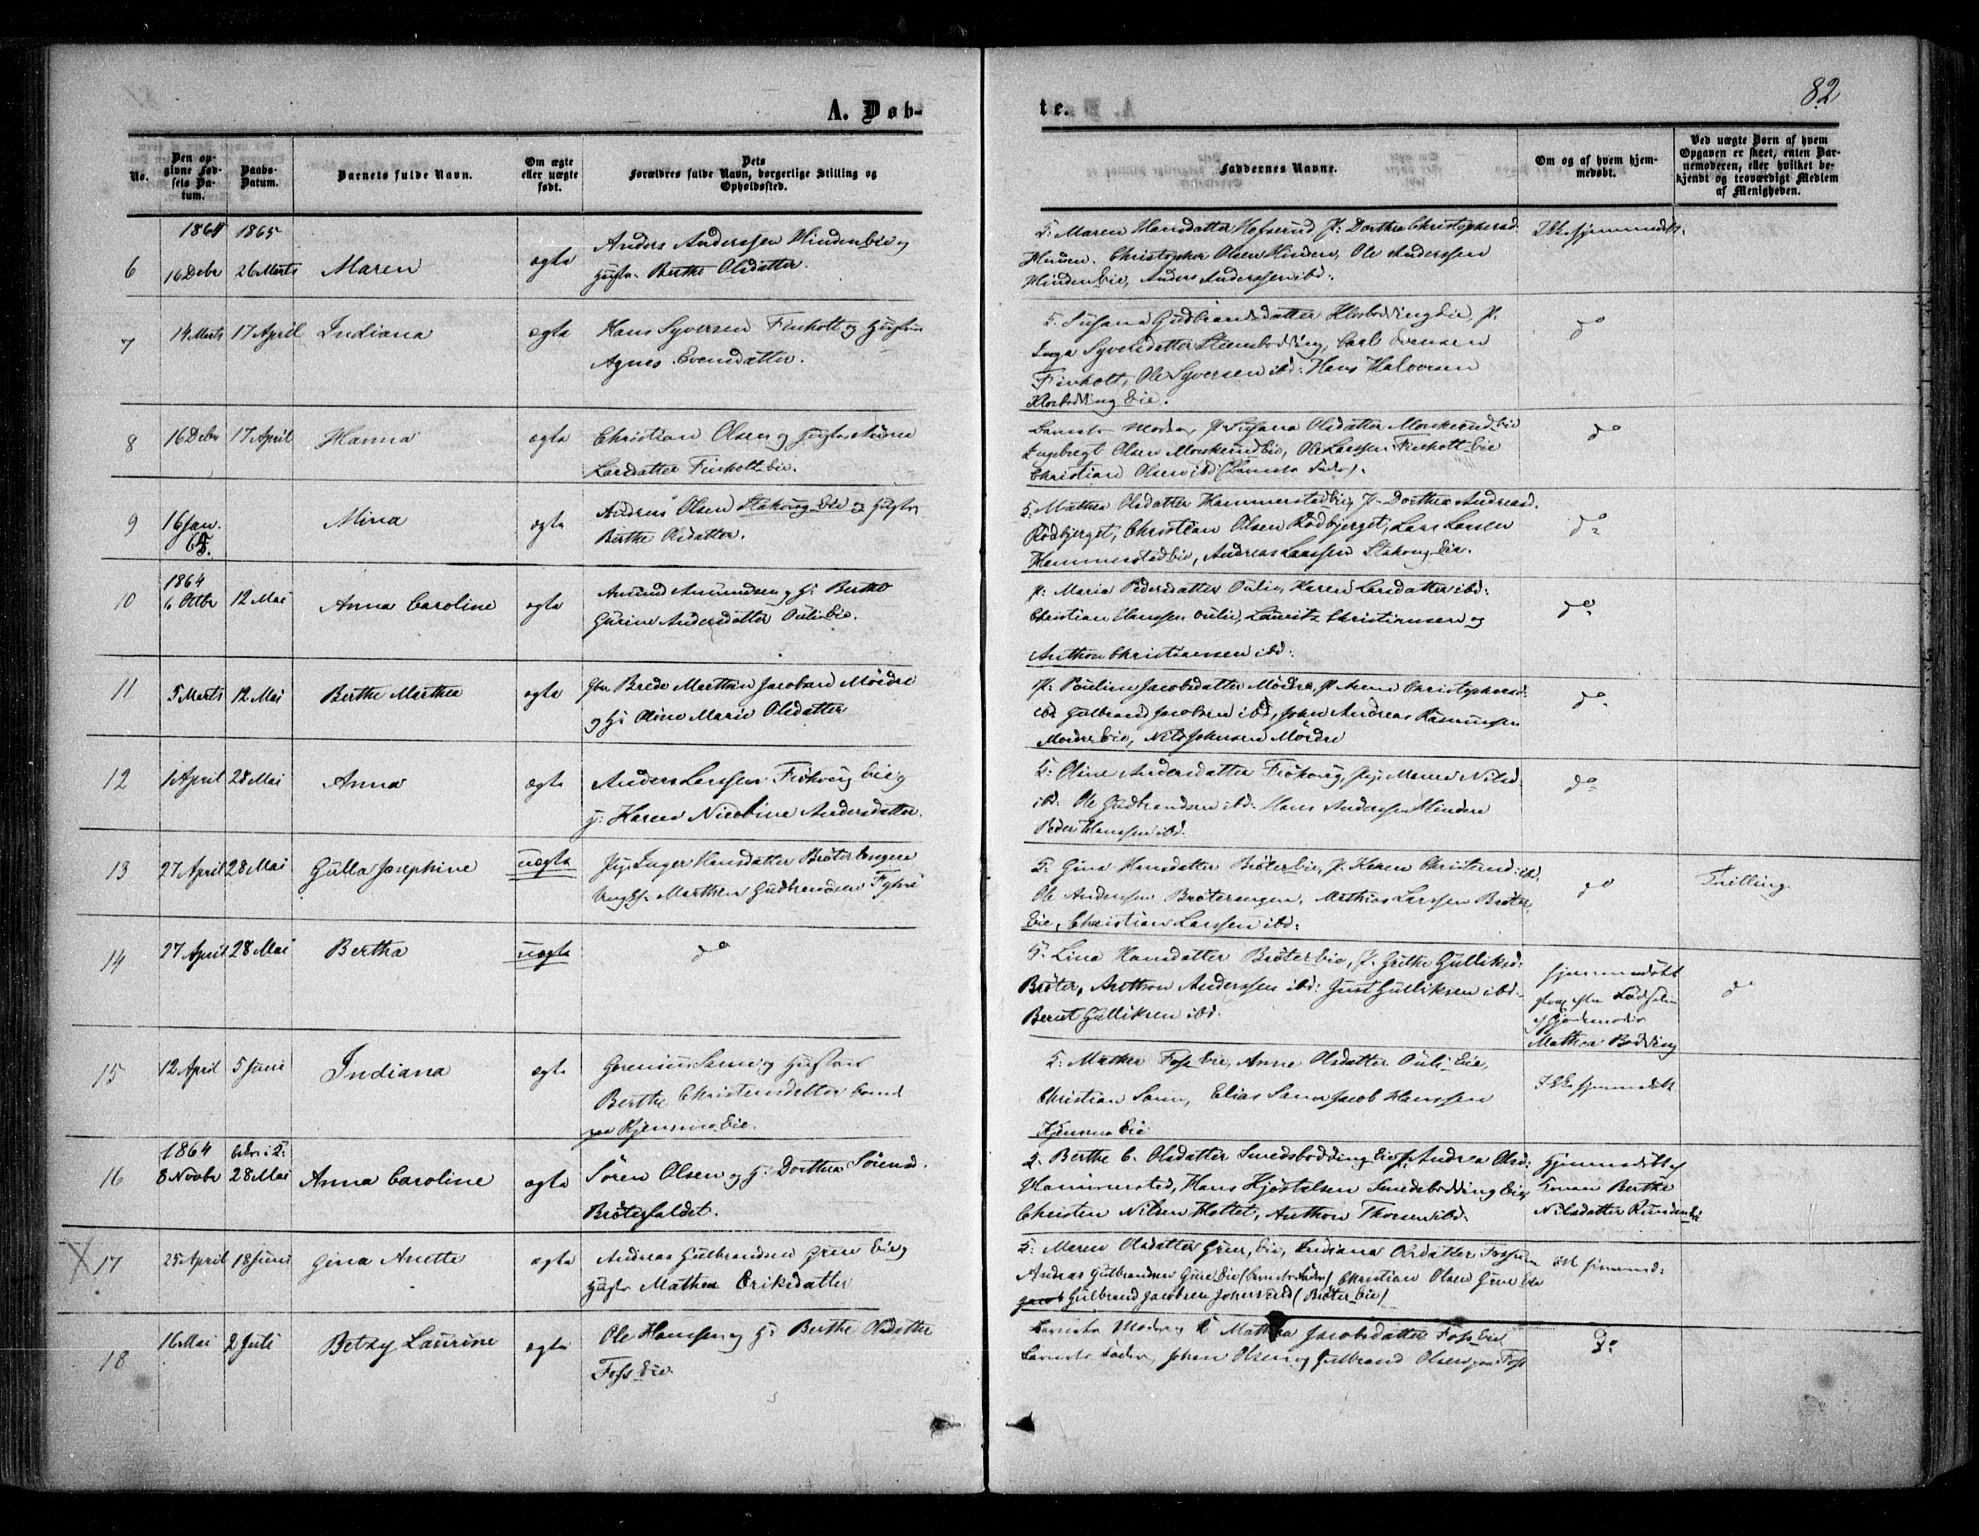 82
A. Døb-
te.
No.
Den opgivne Fødsels Datum.
Daabs-Datum.
Barnets fulde Navn.
Om ægte eller uægte født.
Dets Forældres fulde Navn, borgerlige Stilling og Opholdssted.
Faddernes Navne.
Om og af hvem hjemmedøbt.
Ved uægte Børn af hvem Opgaven er skeet, enten Barnemoderen, eller hvilket bekjendt og troværdigt Medlem af Menigheden.
1864 1865
6 16 Debr 26 Marts Maren ægte Anders Anderssen Hinden Eie og
Hustr. Berthe Olsdatter.
F: Maren Hansdatter Hofserud P: Dorthea Christophersd.
Hinden. Christopher Olsen Hinden, Ole Anderssen
Hinden Eie, Anders Anderssen ibd:
Ikke hjemmedøbt.
7 14 Marts 17 April Indiana ægte Hans Syversen Finholt og Hustru
Agnes Evensdatter.
F. Susana Gudbrandsdatter Klosbødding Eie, P.
Inga Syversdatter Steensbødding, Carl Evensen
Finholt, Ole Syversen ibd: Hans Halvorsen
Klosbødding Eie.
do
8 16 Debr 17 April Hanna ægte Christian Olsen og Hustr
Larsdatter Finholt Eie.
Barnets Moder, P Susana Olsdatter Morkerud Eie
Ingebregt Olsen Morkerud Eie, Ole Larssen Finholt Eie
Christian Olsen ibd (Barnets Fader).
do
9 16 Jan. 65. Mina ægte Andreas Olsen Stakvng Eie og Hustr.
Berthe Olsdatter.
F: Mathea Olsdatter Hammerstad Eie, P. Dorthea Andreasd.
Rødbjerget, Christian Olsen Rødbjerget, Lars Larsen
Hammerstad Eie, Andreas Larssen Stakvng Eie.
do
1864
10 6 Octbr 12 Mai Anna Caroline ægte Amund Amundsen og H: Berthe
Gurine Andersdatter Ouli Eie.
P: Maria Pedersdatter Oulie, Karen Larsdatter ibd:
Christian Hanssen Oulie, Lauritz Christiansen og
Anthon Christiansen ibd:
do
11 5 Marts 12 Mai Berthe Marthea ægte Gbr. Brede Marthin Jacobsen Mørdre
og H: Oline Marie Olsdatter
P: Pouline Jacobsdatter Mørdre, P Anne Christophersd.
ibd Gulbrand Jacobsen ibd, Johan Andreas Rasmussen
Mordre Eie, Nils Johnsen Mørdre
do
12 1 April 28 Mai Anna ægte Anders Larssen Frøhoug Eie og
H: Karen Nicoline Andersdatter.
F: Oline Andersdatter Frøhoug, Pige Maren Nilsd.
ibd: Ole Gudbrandsen ibd: Hans Anderssen Minden
Peder Hanssen ibd.
do
13 27 April 28 Mai Gulla Josephine uægte Pige Inger Hansdatter Brøterbengen
Ungk. Marthin Gudbrandsen Fylvi
F: Gina Hansdatter Brøter Eie, P. Karen Christensd: ibd.
Ole Andersen Brøterengen, Mathias Larssen Brøter
Eie, Christian Larssen ibd:
do Tvilling
14 27 April 28 Mai Bertha uægte do
F: Lina Hansdatter Brøter Eie, P. Grethe Gulliksd:
Brøter, Anthon Anderssen ibd: Just Gulliksen ibd.
Bernt Gulliksen ibd.
hjemmedøbt
strax efter Fødselen
af Gjordemoder
Mathea Bødding
do
15 12 April 5 Juni Indiana ægte Sam og Hustru
Berthe Christensdatter
Kjensmo Eie.
F. Mathea Foss Eie, Anne Olsdatter Ouli Eie,
Christian Sam, Elias Sam Jacob Hanssen
Kjensmo Eie
Ikke hjemmedøbt
1864
16 8 Novbr 28 Mai Anna Caroline ægte Søren Olsen og H: Dorthea Sörensd.
Brøterfaldet.
F. Berthe C. Olsdatter Smedsbødding Eie P: Andrea Olsd:
Hammerstad, Hans Kjøstelsen Smedsbødding Eie
Christen Nilsen Holtet, Anthon Thorsen ibd.
hjemmedøbt af
Konen Berthe
Nilsdatter Runden Eie
X 17 25 April 18 Juni Gina Anette ægte Andreas Gulbrandsen Grue Eie og
Hustr Mathea Eriksdatter
F: Maren Olsdatter Grue, Eie, Indiana Olsdatter Foss
Andreas Gulbrandsen Grue Eie (Barnets Fader), Christian Olsen Grue Eie
Jacob Gulbrand Jacobsen Johnsrud (Brøter Eie)
ikke hjemmed:
18 16 Mai 2 Juli Betzy Laurine ægte Ole Hanssen og H: Berthe Olsdatter
Foss Eie
Barnets Moder, P Mathea Jacobsdatter Foss Eie
Barnets Fader, Johan Olsen og Gulbrand Olsen Foss
Do